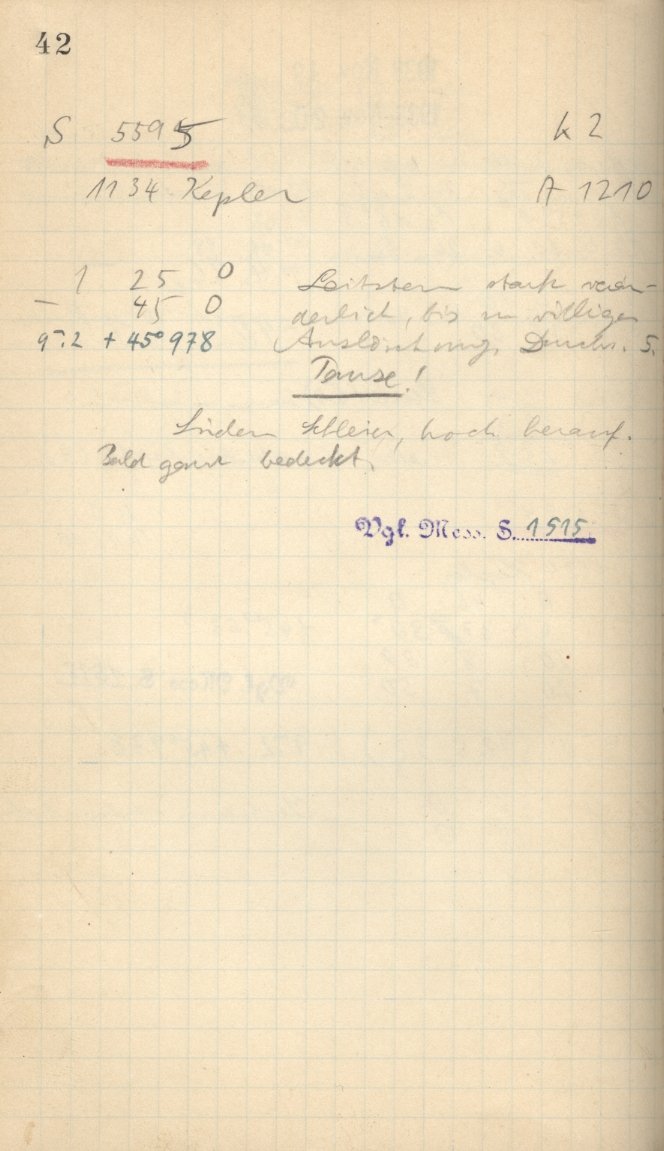 42
S 5595 k 2
1134 Kepler A 1210
1 25 0 Leitstern stark verän-
– 45 0 derlich, bis zu völliger
9m.2 + 45° 978 Auslöschung, Durchs. 5.
Pause!
Süden Schleier, hoch herauf.
Bald ganz bedeckt.
Vgl. Mess. S. 1515